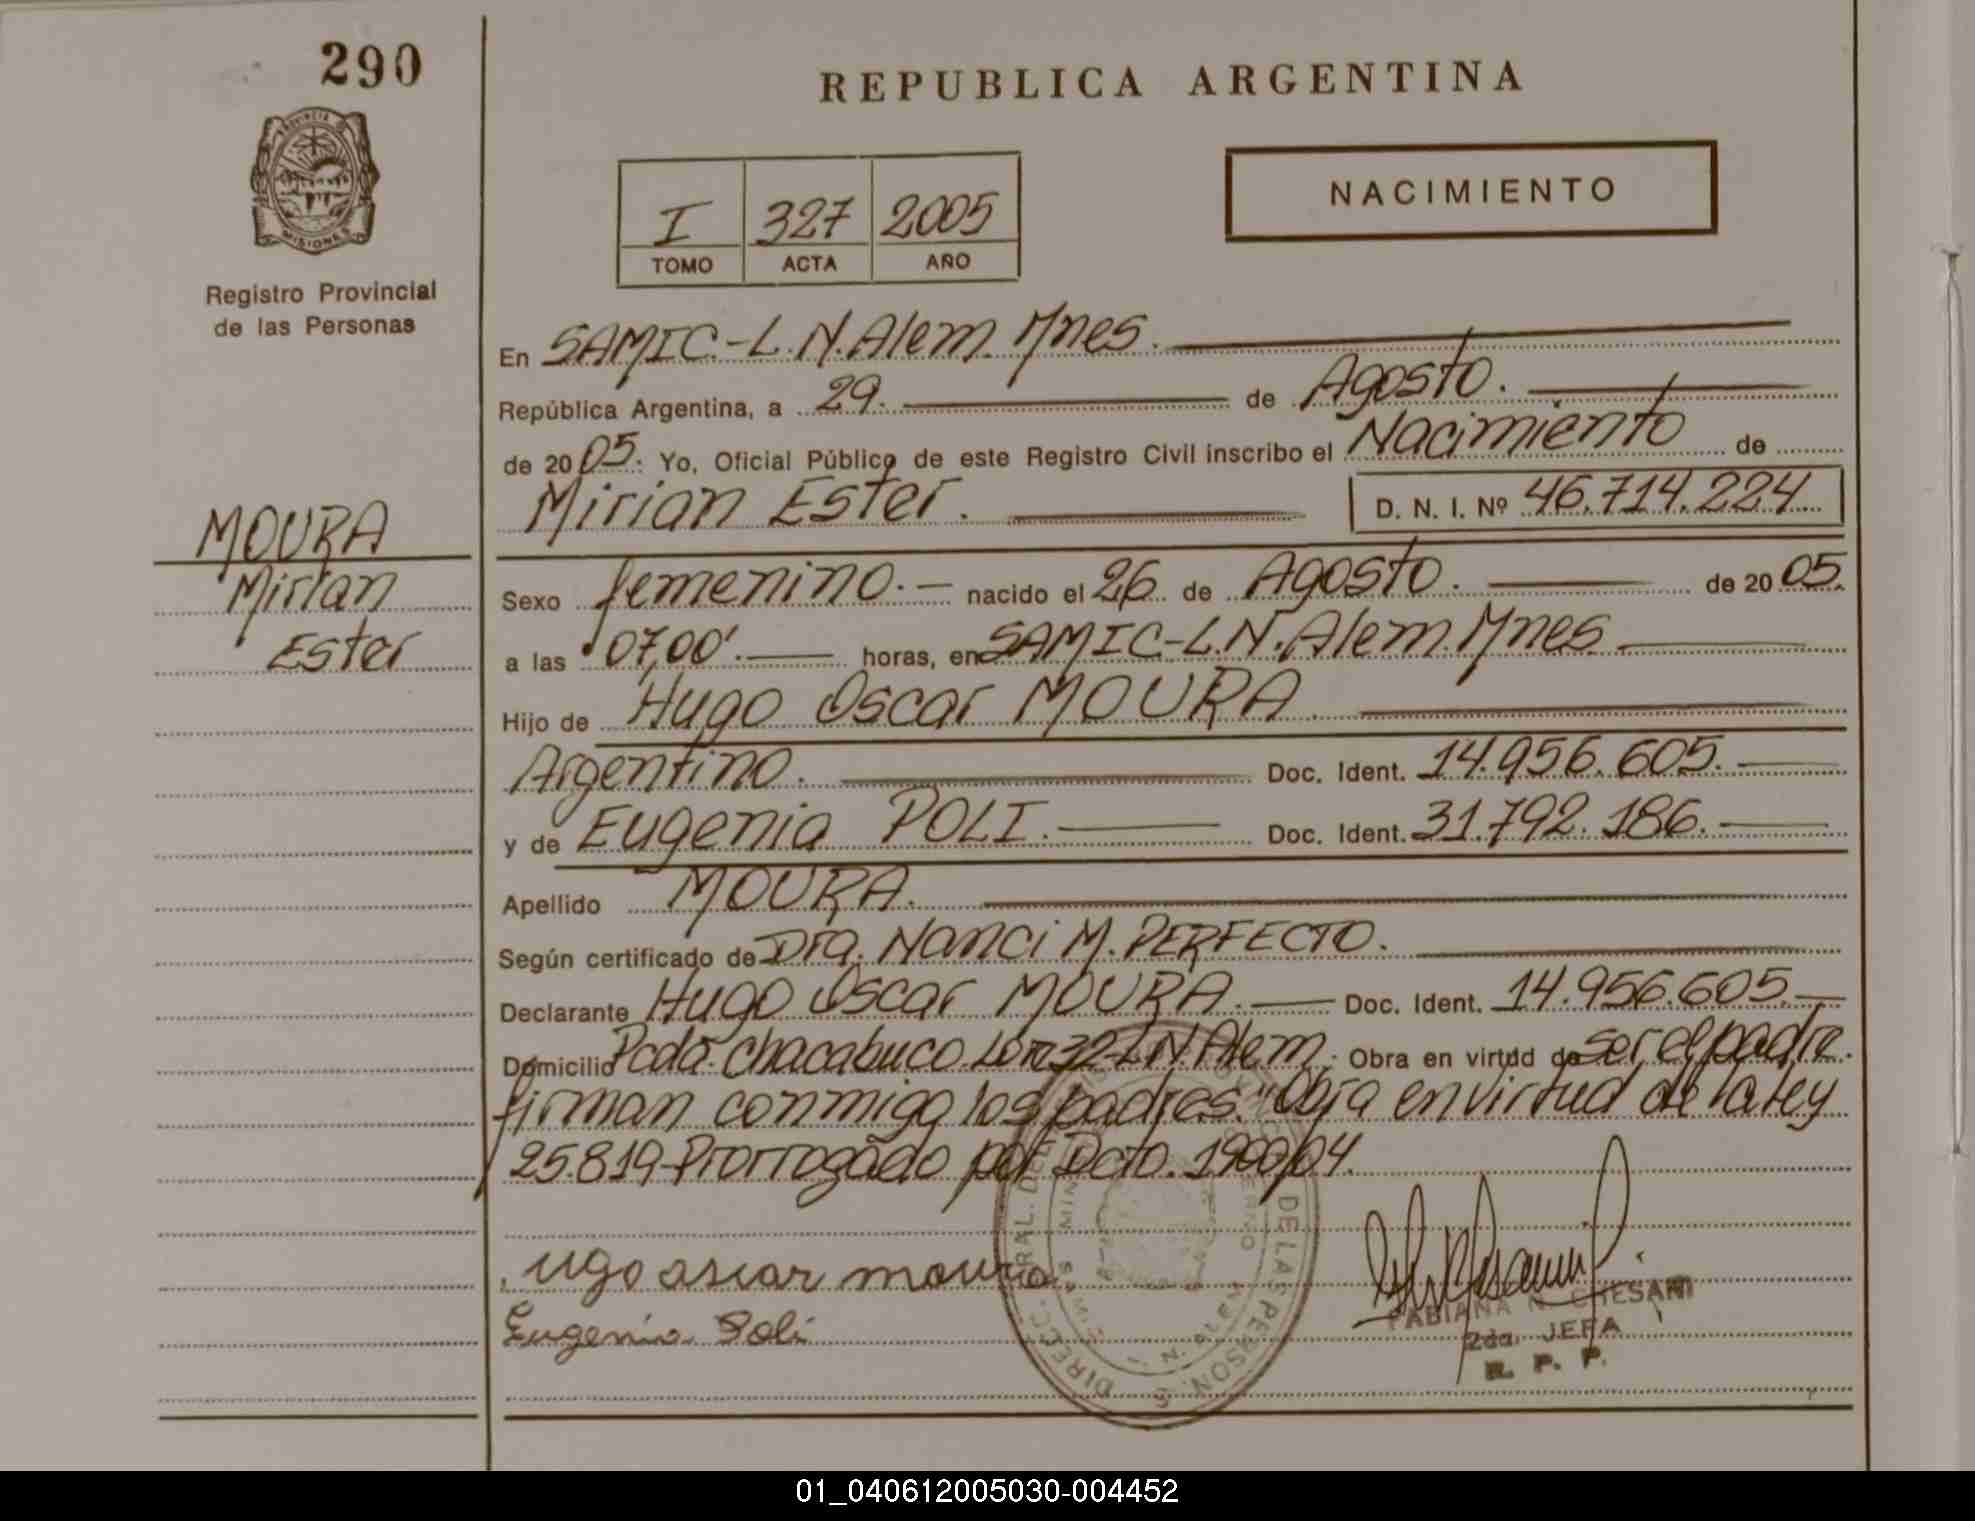 290
PROVINCIA DE
MISIONES
Registro Provincial
de las Personas
MOURA
Mirian
Ester
REPUBLICA ARGENTINA
I 327 2005
TOMO ACTA AÑO
NACIMIENTO
En SAMIC.-L.N.Alem. Mnes.
República Argentina, a 29. de Agosto.
de 2005. Yo, Oficial Público de este Registro Civil inscribo el Nacimiento de
Mirian Ester. D. N. I. Nº 46.714.224
Sexo femenino.- nacido el 26 de Agosto. de 2005.
a las 07,00'. horas, en SAMIC-L.N.Alem.Mnes
Hijo de Hugo Oscar MOURA
Argentino. Doc. Ident. 14.956.605.
y de Eugenia POLI. Doc. Ident. 31.792.186.
Apellido MOURA.
Según certificado de Dra. Nanci M. PERFECTO.
Declarante Hugo Oscar MOURA. Doc. Ident. 14.956.605.
Domicilio Pcda. Chacabuco. Km32-L.N.Alem. Obra en virtud de ser el padre.
firman conmigo los padres. "Obra en virtud de la ley
25.819-Prorrogado por Dcto. 1900/04.
ugo oscar moura
Eugenia Poli
FABIANA N. CHESANI
2da. JEFA
R. P. P.
DE LAS PERSON.S
N. ALEM
01_040612005030-004452